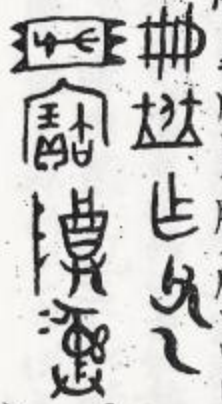 冊竝乍父乙
寶尊彝